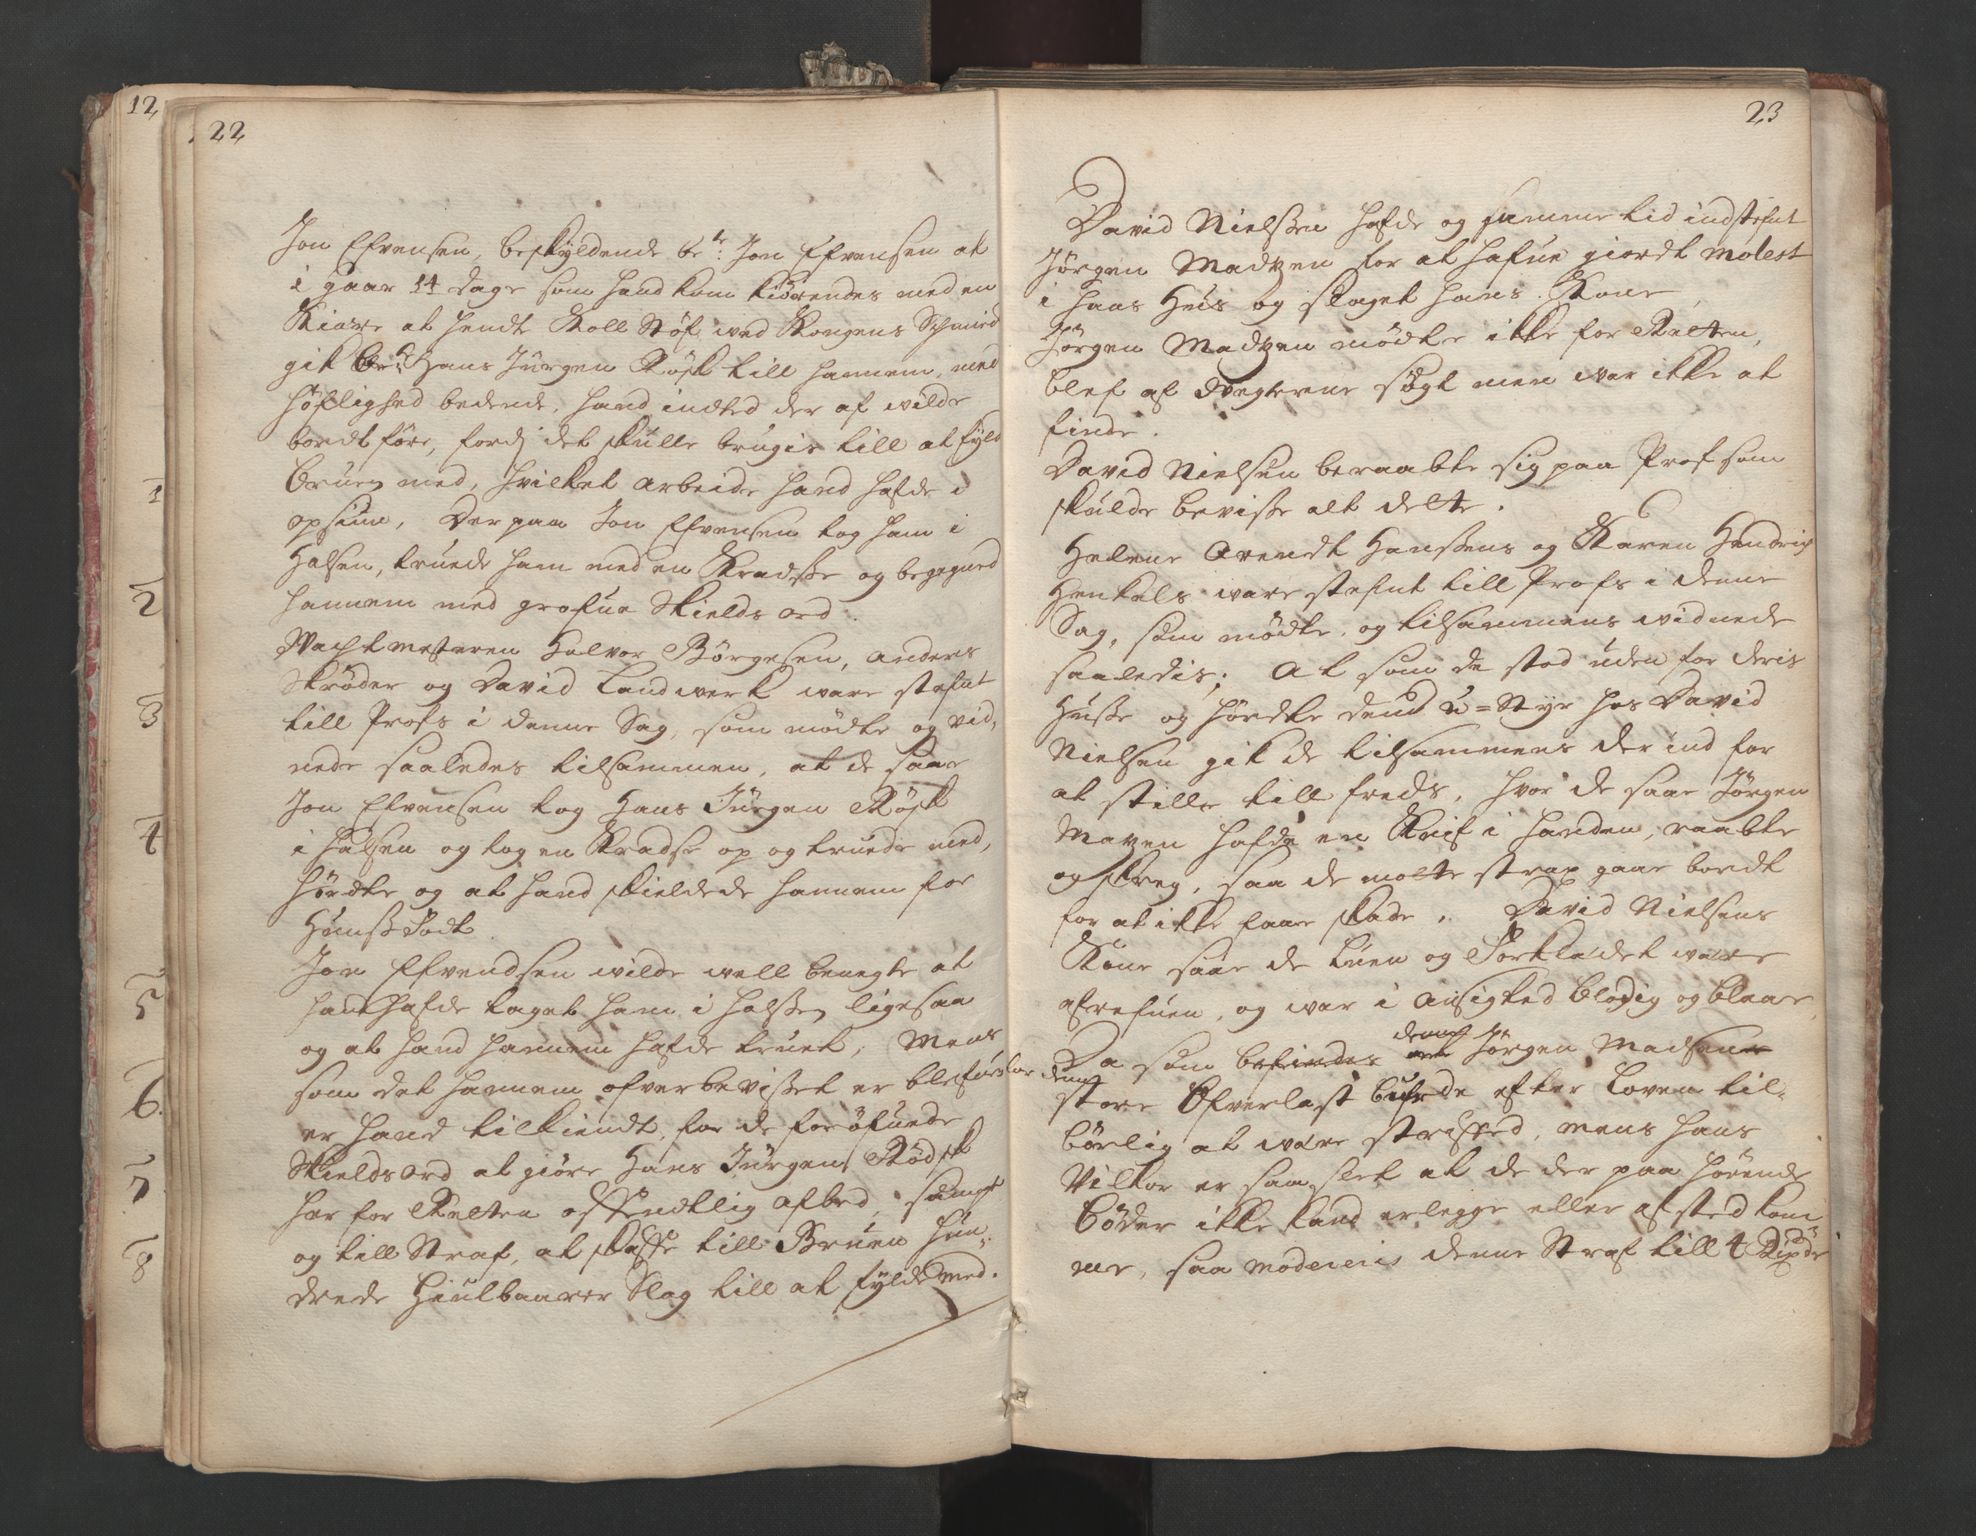 12
22
Jon Efvensen, beskyldende be:te Jon Efvensen at
i gaar 14 dage som hand kom kiörendes med en
Kiærre at hendte Koll Støf wed Kongens Schmied
gik be:te Hans Jürgen Röst till hannem, med
höflighed bedende, hand indted der af wilde
bordt före, fordj det skulle brugis till at fylde
Bruen med, hvilket arbeide hand hafde i
opsiun, Der paa Jon Efvensen tog ham i
Halsen, truede ham med en Kradsse og begegned
hannem med grofue Skields ord.
Wachtmesteren Halvor Börgesen, Anders
Skröder og David Landwerk ware stefnt
till Profs i denne Sag, som mödte og vid-
nede saaledes tilsammen, at de saae
Jon Efvensen tog Hans Jürgen Röst
i halsen og tog en Kradse op og truede med,
hördte og at hand skieldede hannem for
Hunss
Jon Efvendsen wilde well benegte at
hand hafde taget ham i halssen ligesaa
og at hand hannem hafde truet, Mens
som det hannem ofverbevisset er blefven
er hand tilkiendt, for de for öfuede
Skieldsord at giöre Hans Jürgen Rödst
her for Retten offendtlig afbed, sampt
og till Straf, at skaffe till Bruen hun-
drede Hiulbaarer Slag till at fylde med.
1
2
3
4
5
6.
7
8
23
David Nielssen hafde og samme tid indstefnt
Jörgen Madzen for at hafue giordt Molest
i hans Hus og slaget hans Kone,
Jörgen Madzen mödte ikke for Retten,
blef af Wegterne sögt men war ikke at
finde.
David Nielsen beraabte sig paa Prof som
skulde bevisse alt dette.
Helene Arendt Hanssens og Karen Hendrich
Henkels ware stefnt till Profs i denne
Sag, som mödte, og tilsammens widnede
saaledis; At som de stod uden for deris
Husse og hördte dend u-Stye hos David
Nielsen gik de tilsammens der ind for
at stille till freds, hvor de saae Jörgen
Mazen hafde en Knif i handen, raabte
og skreg, saa de motte strax gaae bordt
for at ikke faae skade. David Nielsens
Kone saae de Luen og Forklædet ware
afrefuen, og war i Ansigted blodig og blaae,
Da som befindes denne Jörgen Madsen for denne
store Ofverlast burde efter Loven til-
börlig at ware straffed, mens hans
Vilkor er saa slet at de der paa hörende
Böder ikke kand erlegge eller afsted kom-
me, saa modereris denne Straf till 4